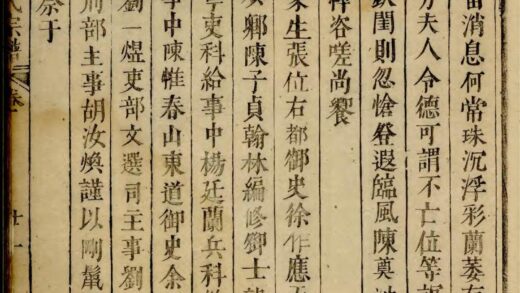 留消息何常珠沉浮彩蘭萎
方夫人令德可謂不亡位等
鉄閨則忽愴登遐臨風陳奠
粹咨嗟尚饗
家生張位右都御史徐作應
鄉陳子貞翰林編修鄧士
吏科給事中楊廷蘭兵科
事中陳惟春山東道御史余
劉一煜吏部文選司主事劉
刑部主事胡汝煥謹以剛鬣
祭于
氏宗譜
十一